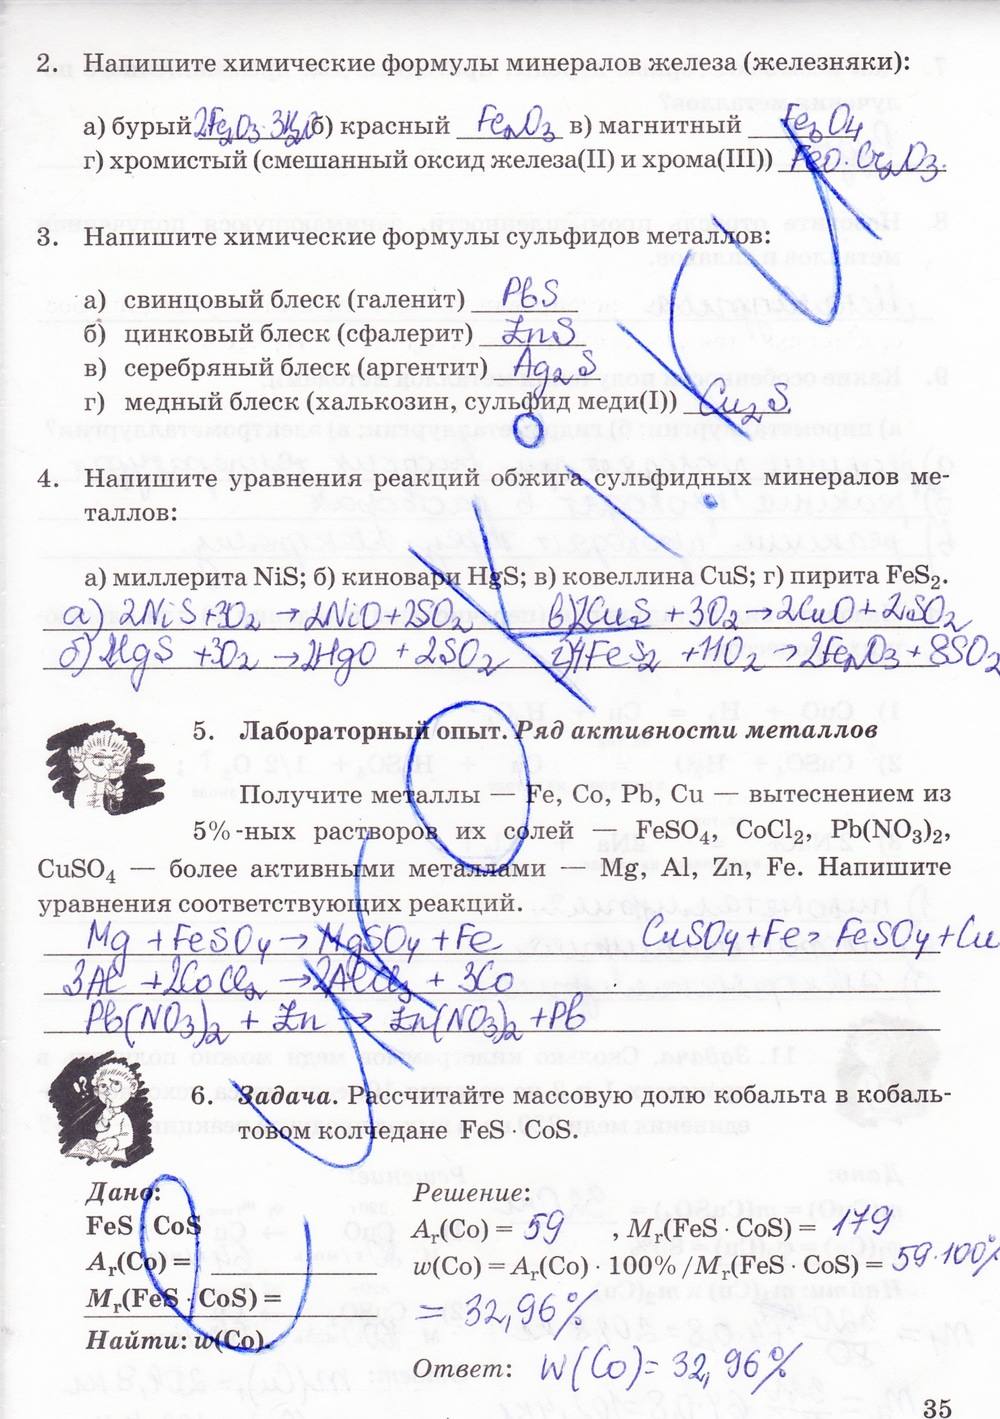 2. Напишите химические формулы минералов железа (железняки):
а) бурый 2Fe2O3·3H2O б) красный Fe2O3 в) магнитный Fe3O4
г) хромистый (смешанный оксид железа(II) и хрома(III)) FeO·Cr2O3.
3. Напишите химические формулы сульфидов металлов:
а) свинцовый блеск (галенит) PbS
б) цинковый блеск (сфалерит) ZnS
в) серебряный блеск (аргентит) Ag2S
г) медный блеск (халькозин, сульфид меди(I)) Cu2S
4. Напишите уравнения реакций обжига сульфидных минералов ме-
таллов:
а) миллерита NiS; б) киновари HgS; в) ковеллина CuS; г) пирита FeS2.
а) 2NiS+3O2 → 2NiO+2SO2 в) 2CuS + 3O2 → 2CuO + 2SO2
б) 2HgS +3O2 → 2HgO + 2SO2 г) 4FeS2 +11O2 → 2Fe2O3 + 8SO2
5. Лабораторный опыт. Ряд активности металлов
Получите металлы — Fe, Co, Pb, Cu — вытеснением из
5%-ных растворов их солей — FeSO4, CoCl2, Pb(NO3)2,
CuSO4 — более активными металлами — Mg, Al, Zn, Fe. Напишите
уравнения соответствующих реакций.
Mg + FeSO4 → MgSO4 + Fe CuSO4+Fe= FeSO4+Cu
3Al + 2CoCl2 → 2AlCl3 + 3Co
Pb(NO3)2 + Zn → Zn(NO3)2 +Pb
6. Задача. Рассчитайте массовую долю кобальта в кобаль-
товом колчедане FeS · CoS.
Дано: Решение:
FeS · CoS Ar(Co) = 59 , Mr(FeS · CoS) = 179
Ar(Co) = w(Co) = Ar(Co) · 100% / Mr(FeS · CoS) = 59·100%
Mr(FeS · CoS) = = 32,96%
Найти: w(Co).
Ответ: W(Co)= 32,96%
35